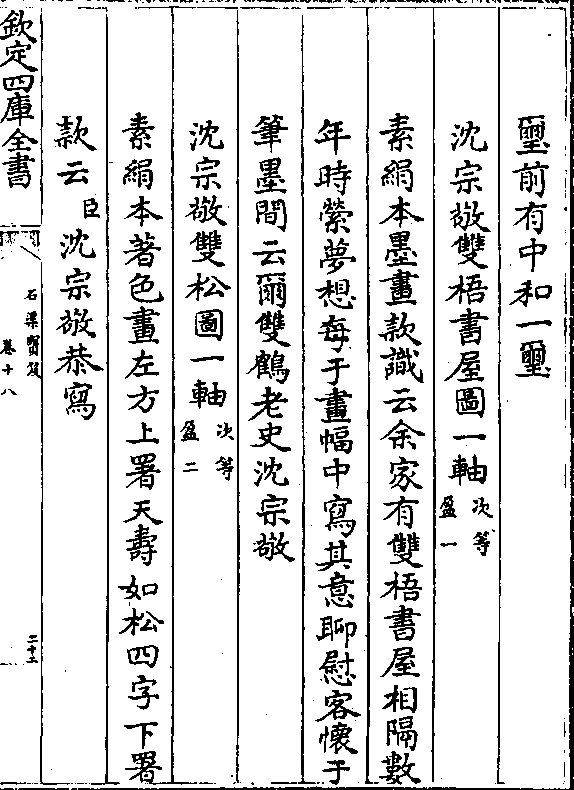 璽前有中和一璽
沈宗敬雙梧書屋圖一軸次等盈一
素絹本墨畫款識云余家有雙梧書屋相隔數
年時縈夢想每于畫幅中寫其意聊慰客懷于
筆墨間云爾雙鶴老史沈宗敬
沈宗敬雙松圖一軸次等盈二
素絹本著色畫左方上署天壽如松四字下署
款云臣沈宗敬恭寫
欽定四庫全書
石渠寶笈
卷十八
二十二